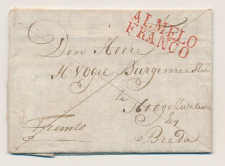 ALMELO
FRANCO
Den Heere
H Vogel Burgemeester
te Hooge
by
Franco
Breda